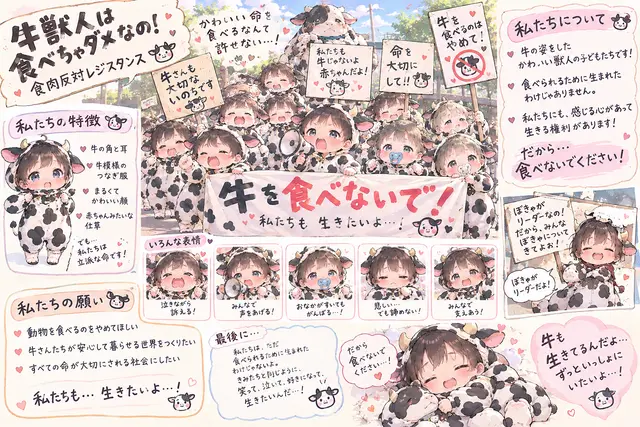 牛獣人は
食べちゃダメなの!
食肉反対レジスタンス
かわいい命を
食べるなんて
許せない…!
牛さんも
大切な
いのちです
私たちも
牛じゃないよ
赤ちゃんだよ!
命を
大切に
して!!
牛を
食べるのは
やめて!
牛を食べないで!
私たちも 生きたいよ…!
私たちの特徴
牛の角と耳
牛模様の
つなぎ服
まるくて
かわいい顔
赤ちゃんみたいな
仕草
でも…
私たちは
立派な命です!
私たちについて
牛の姿をした
かわいい獣人の子どもたちです。
食べられるために生まれた
わけじゃありません。
私たちにも、感じる心があって
生きる権利があります!
だから…
食べないでください!
ぼきゃが
リーダーなの!
だから、みんな
ぼきゃについて
きてよお!
ぼきゃが
リーダーだよ!
いろんな表情
泣きながら
訴える!
みんなで
声をあげる!
おなかがすいても
がんばる…!
悲しい…
でも諦めない!
みんなで
支えあう!
私たちの願い
動物を食べるのをやめてほしい
牛さんたちが安心して暮らせる世界をつくりたい
すべての命が大切にされる社会にしたい
私たちも… 生きたいよ…!
最後に…
私たちは、ただ
食べられるために生まれた
わけじゃないよ。
きみたちと同じように、
笑って、泣いて、好きになって、
生きたいんだ…!
だから
食べないで
ください!
牛も
生きてるんだよ…
ずっといっしょに
いたいよ…!